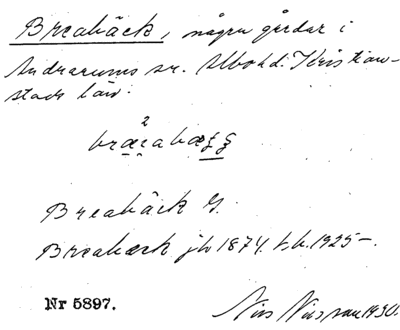 Breabäck, några gårdar i
Andrarums sn. Albo hd. Kristian-
stads län.
2
bræabæ
Breabäck G.
Breabæck jb 1874. 1925-.
Nr 5897.
Nils Nilsson 1930.